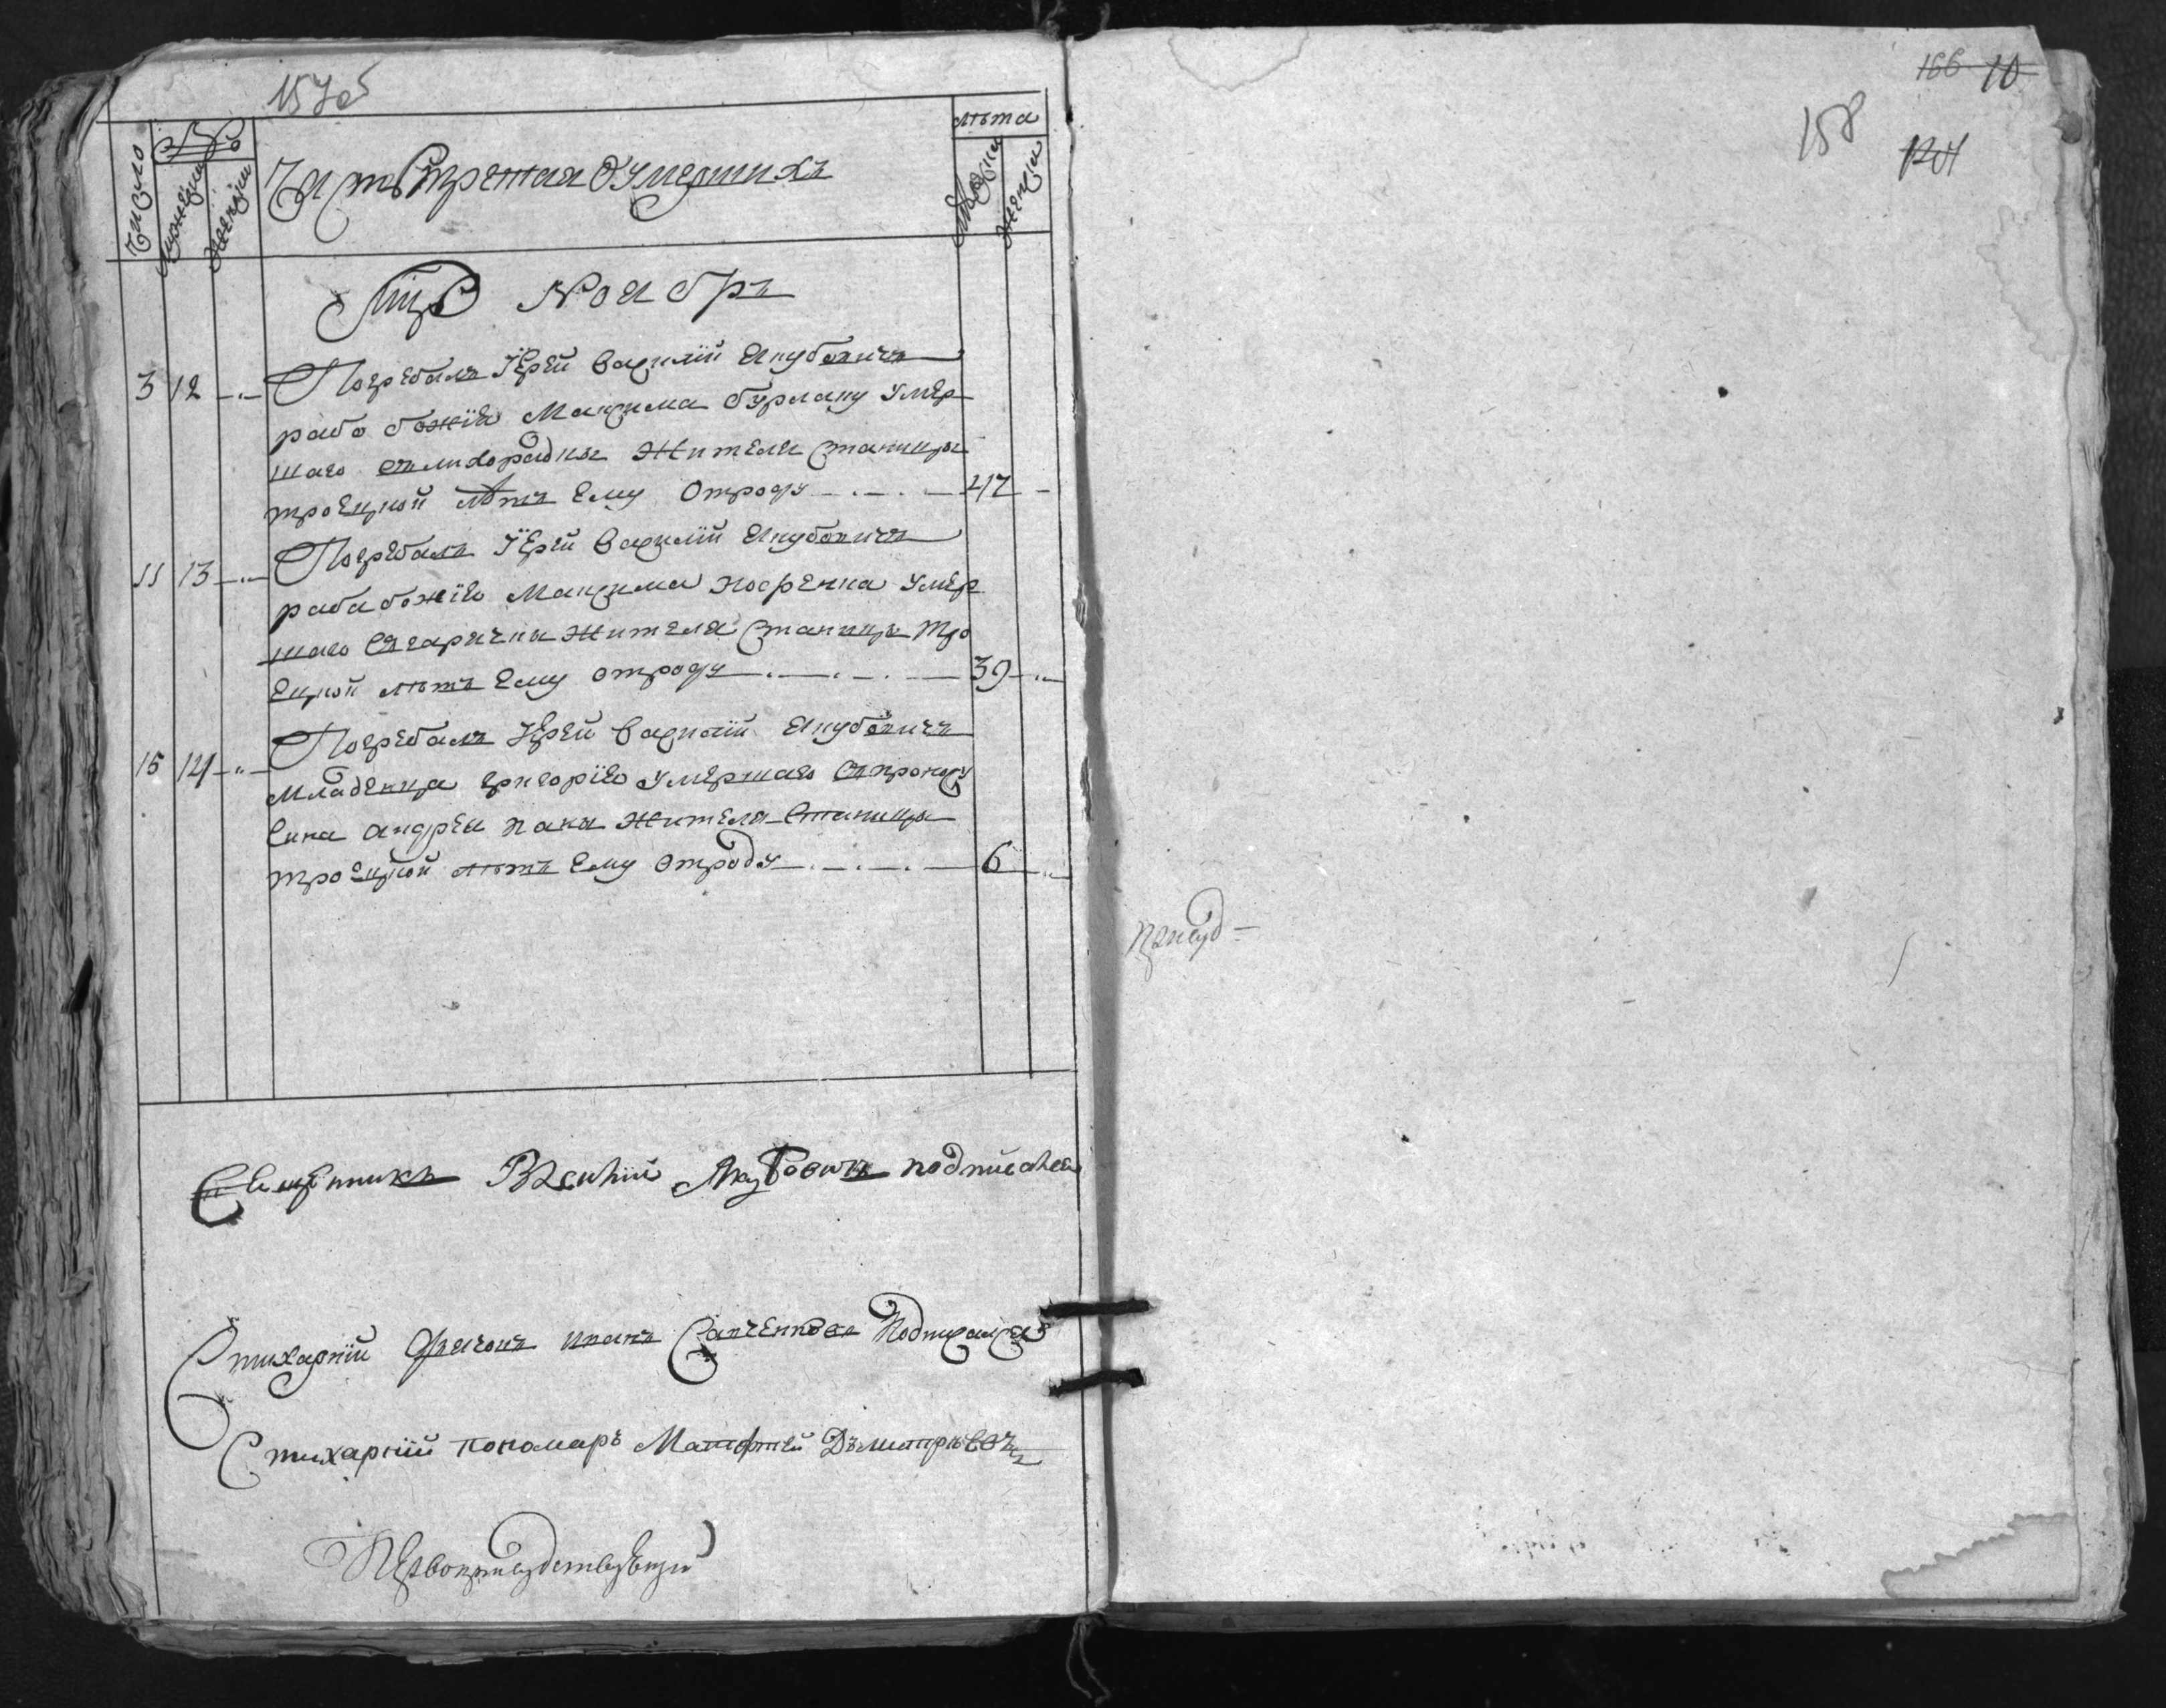 157об
Число
№
мужескій
женскій
Часть третая Оумершихъ
лѣта
мужска
женска
Мцъ Ноябрь
3 12 Погребалъ Іерей Василій Якубовичь
раба божія Максима бурлаку Умер
шаго отлихорадки Жителя Станицы
троецкой Лѣтъ Ему Отроду 47
11 13 Погребалъ Іерей Василій Якубовичь
раба божіго Максима Умер
шаго Отгарячки Жителя Станицы Тро
ецкой лѣтъ Ему отроду 39
15 14 Погребалъ Іерей Василій Якубовичь
Младенца григорія Умершаго
Сина андрея Жителя Станицы
троецкой лѣтъ Ему отроду 6
Священникъ Василій Якубовичь подписался
Стихарній Дьячокъ иванъ Савченковъ Подписался
Стихарній пономаръ Матфей Дъмитрѣевъ
166 10
158